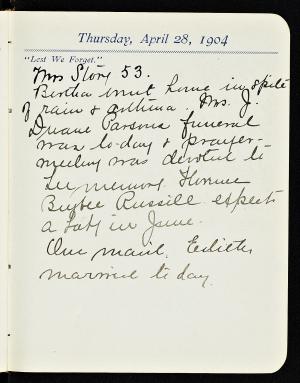 Thursday, April 28, 1904
"Lest We Forget."
Mrs Story 53.
Bertha went home in spite
of rain & asthma. Mrs. J.
Duane Parsons funeral
was to-day & prayer-
meeting was devoted to
her memory. Florence
Bugbee Russell expects
a baby in June.
Our maid, Edith,
married to day.